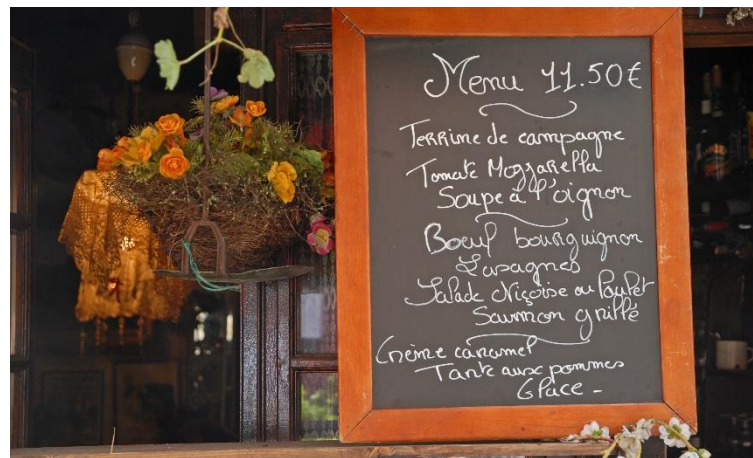 Menu 11.50€
Terrine de campagne
Tomate Mozzarella
Soupe à l'oignon
Boeuf bourguignon
Lasagnes
Salade Niçoise ou Poulet
Saumon grillé
Crème caramel
Tarte aux pommes
Glace -